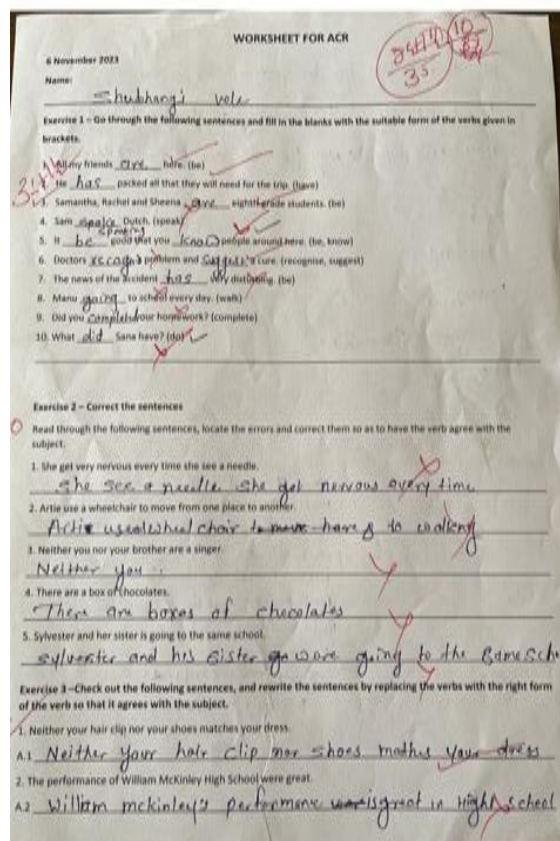 WORKSHEET FOR ACR
6 November 2023
Name:
Shubhangi vele
35
10
Exercise 1 – Go through the following sentences and fill in the blanks with the suitable form of the verbs given in
brackets.
1. All my friends are here. (be)
2. He has packed all that they will need for the trip. (have)
3. Samantha, Rachel and Sheena are eighth-grade students. (be)
4. Sam Dutch. (speak)
speaking
5. It be good that you know people around here. (be, know)
6. Doctors problem and cure. (recognise, suggest)
7. The news of the accident has very disturbing. (be)
8. Manu going to school every day. (walk)
9. Did you your homework? (complete)
10. What did Sana have? (do)
Exercise 2 – Correct the sentences
0
Read through the following sentences, locate the errors and correct them so as to have the verb agree with the
subject.
1. She get very nervous every time she see a needle.
she see a needle she get nervous every time
2. Artie use a wheelchair to move from one place to another.
Artie wheel chair to to walking
3. Neither you nor your brother are a singer.
Neither you
4. There are a box of chocolates.
There are boxes of chocolates
5. Sylvester and her sister is going to the same school.
sylvester and his sister going to the same
Exercise 3 –Check out the following sentences, and rewrite the sentences by replacing the verbs with the right form
of the verb so that it agrees with the subject.
1. Neither your hair clip nor your shoes matches your dress.
A.1 Neither your hair clip nor shoes your dress
2. The performance of William McKinley High School were great.
A.2 William mckinley's is great in High school